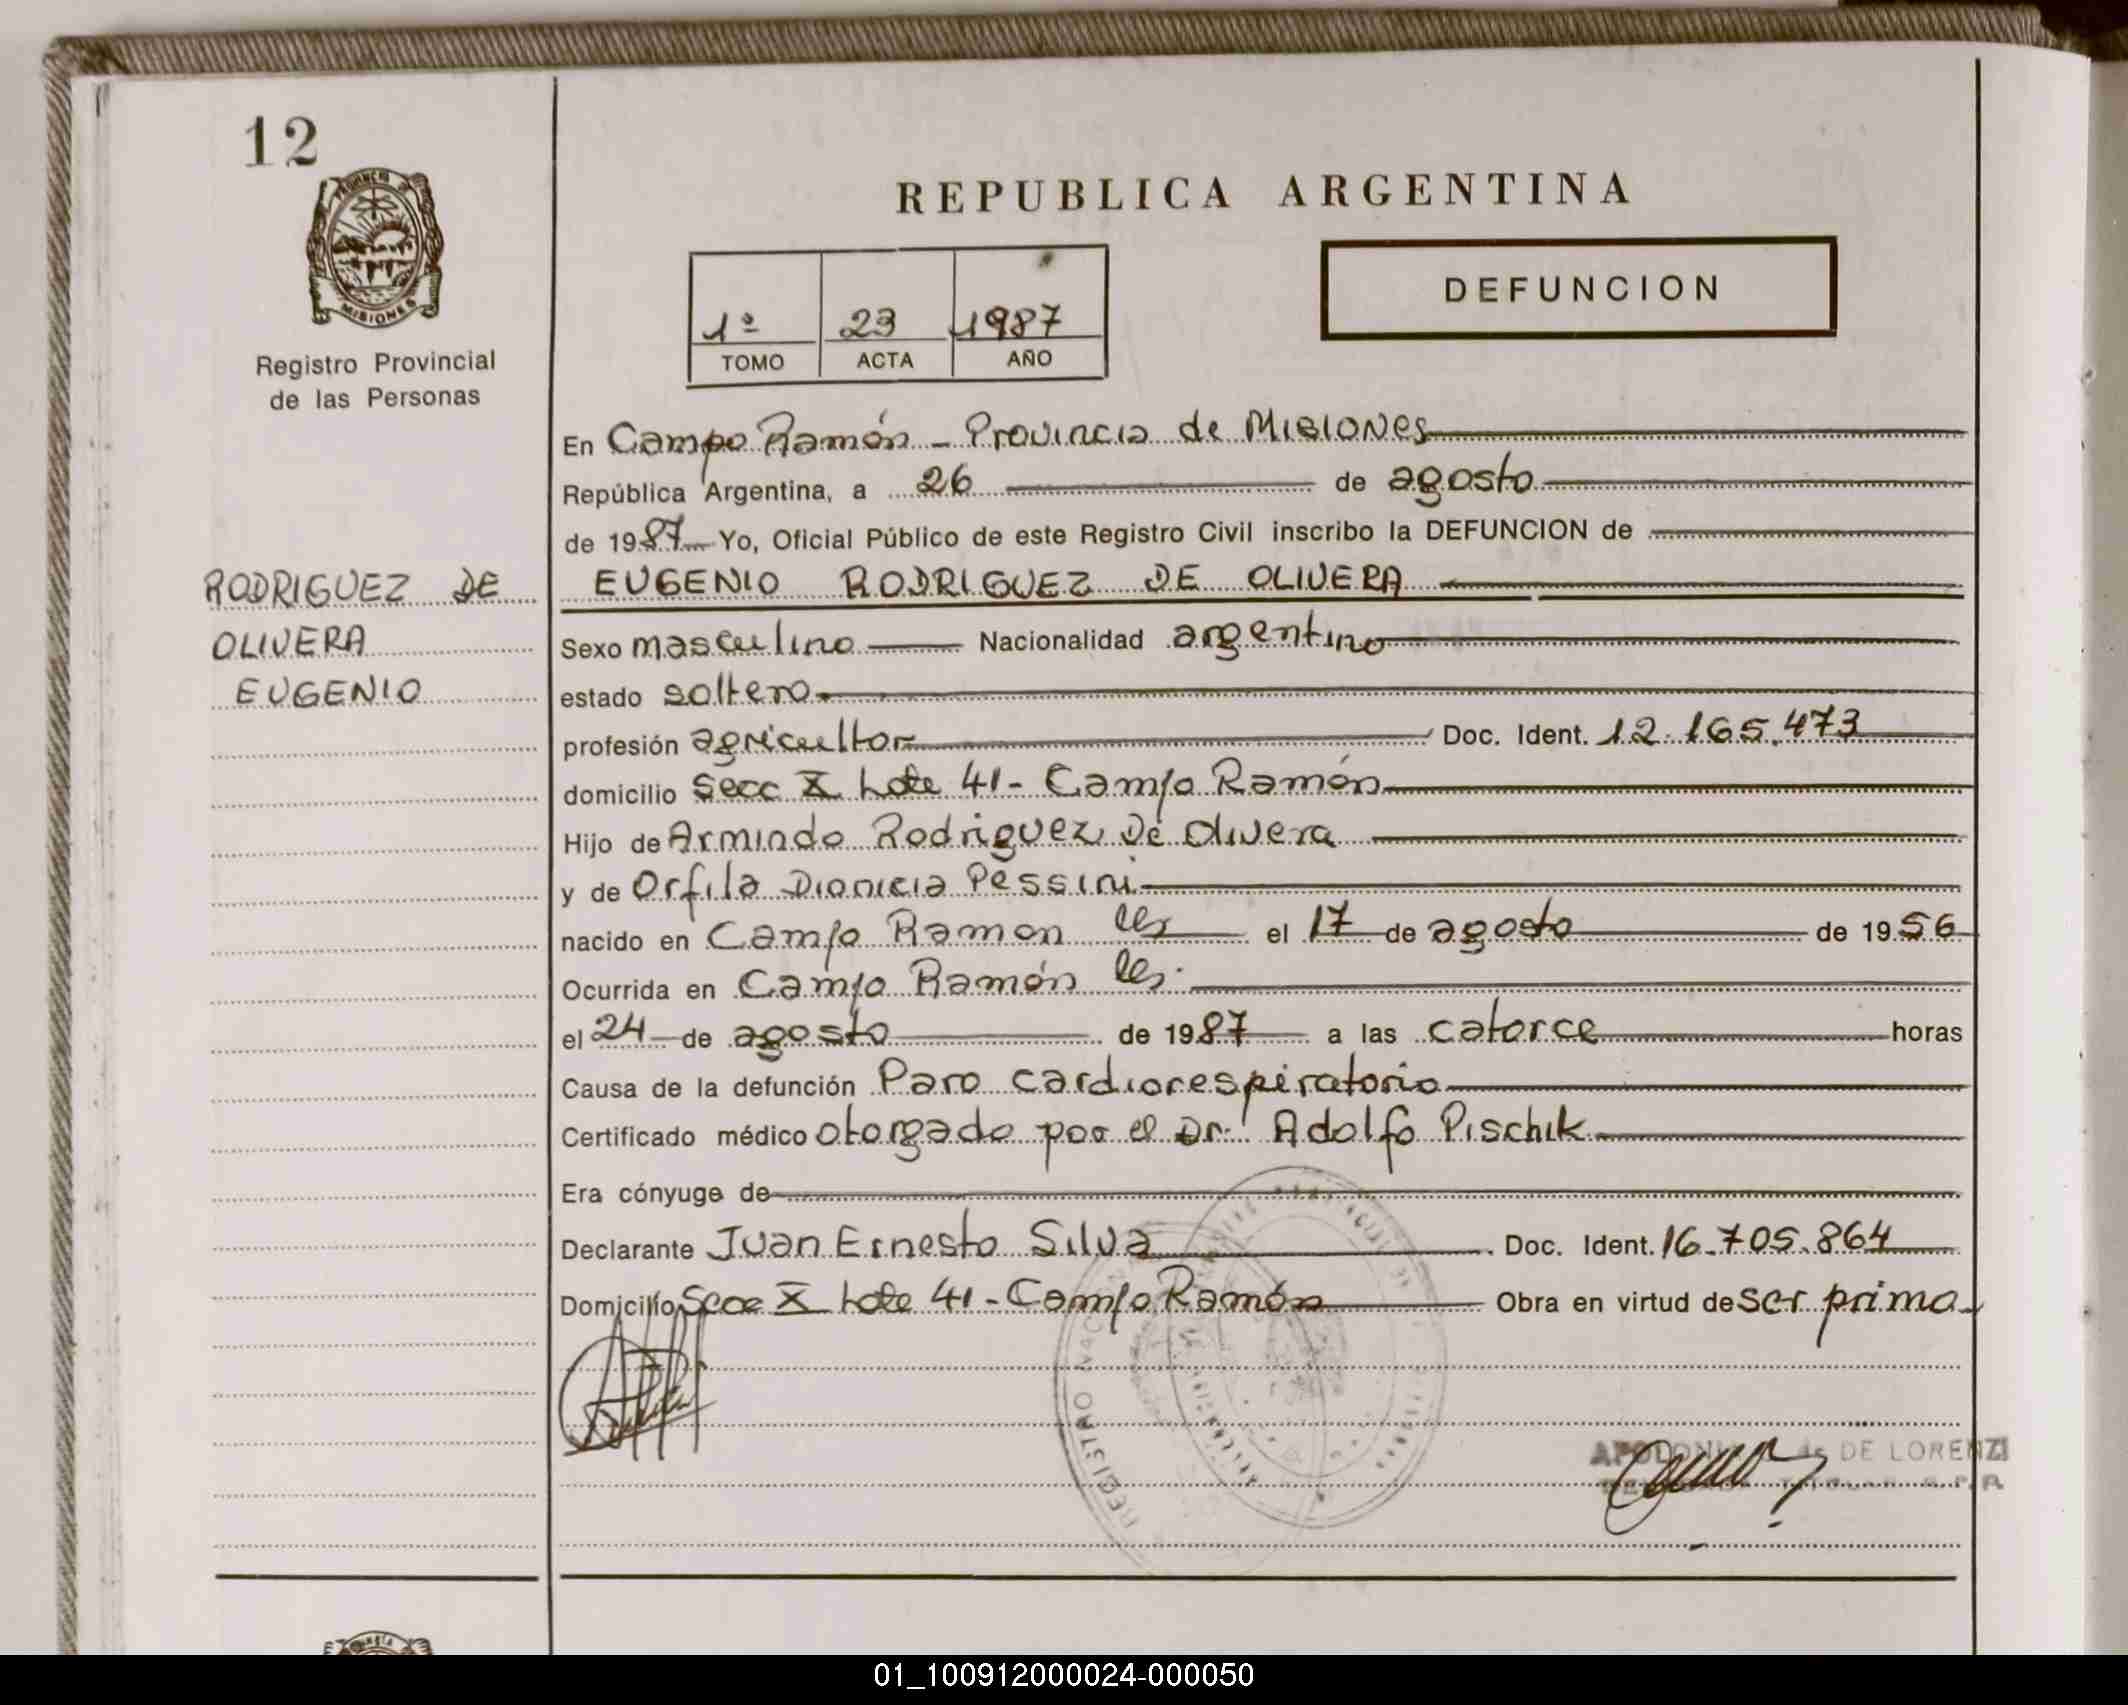 12
PROVINCIA DE
MISIONES
Registro Provincial
de las Personas
REPUBLICA ARGENTINA
1º 23 1987
TOMO ACTA AÑO
DEFUNCION
En Campo Ramón - Provincia de Misiones
República Argentina, a 26 de agosto
de 1987 Yo, Oficial Público de este Registro Civil inscribo la DEFUNCION de
RODRIGUEZ DE
OLIVERA
EUGENIO
EUGENIO RODRIGUEZ DE OLIVERA
Sexo masculino Nacionalidad argentino
estado soltero
profesión agricultor Doc. Ident. 12.165.473
domicilio Secc X Lote 41 - Campo Ramón
Hijo de Armindo Rodriguez De Olivera
y de Orfila Dionicia Pessini
nacido en Campo Ramon el 17 de agosto de 1956
Ocurrida en Campo Ramón
el 24 de agosto de 1987 a las catorce horas
Causa de la defunción Paro cardiorespiratorio
Certificado médico otorgado por el Dr. Adolfo Pischik
Era cónyuge de
Declarante Juan Ernesto Silva Doc. Ident. 16.705.864
Domicilio Secc X Lote 41 - Campo Ramón Obra en virtud de ser primo
REGISTRO NACIONAL
DE LORENZI
01_100912000024-000050